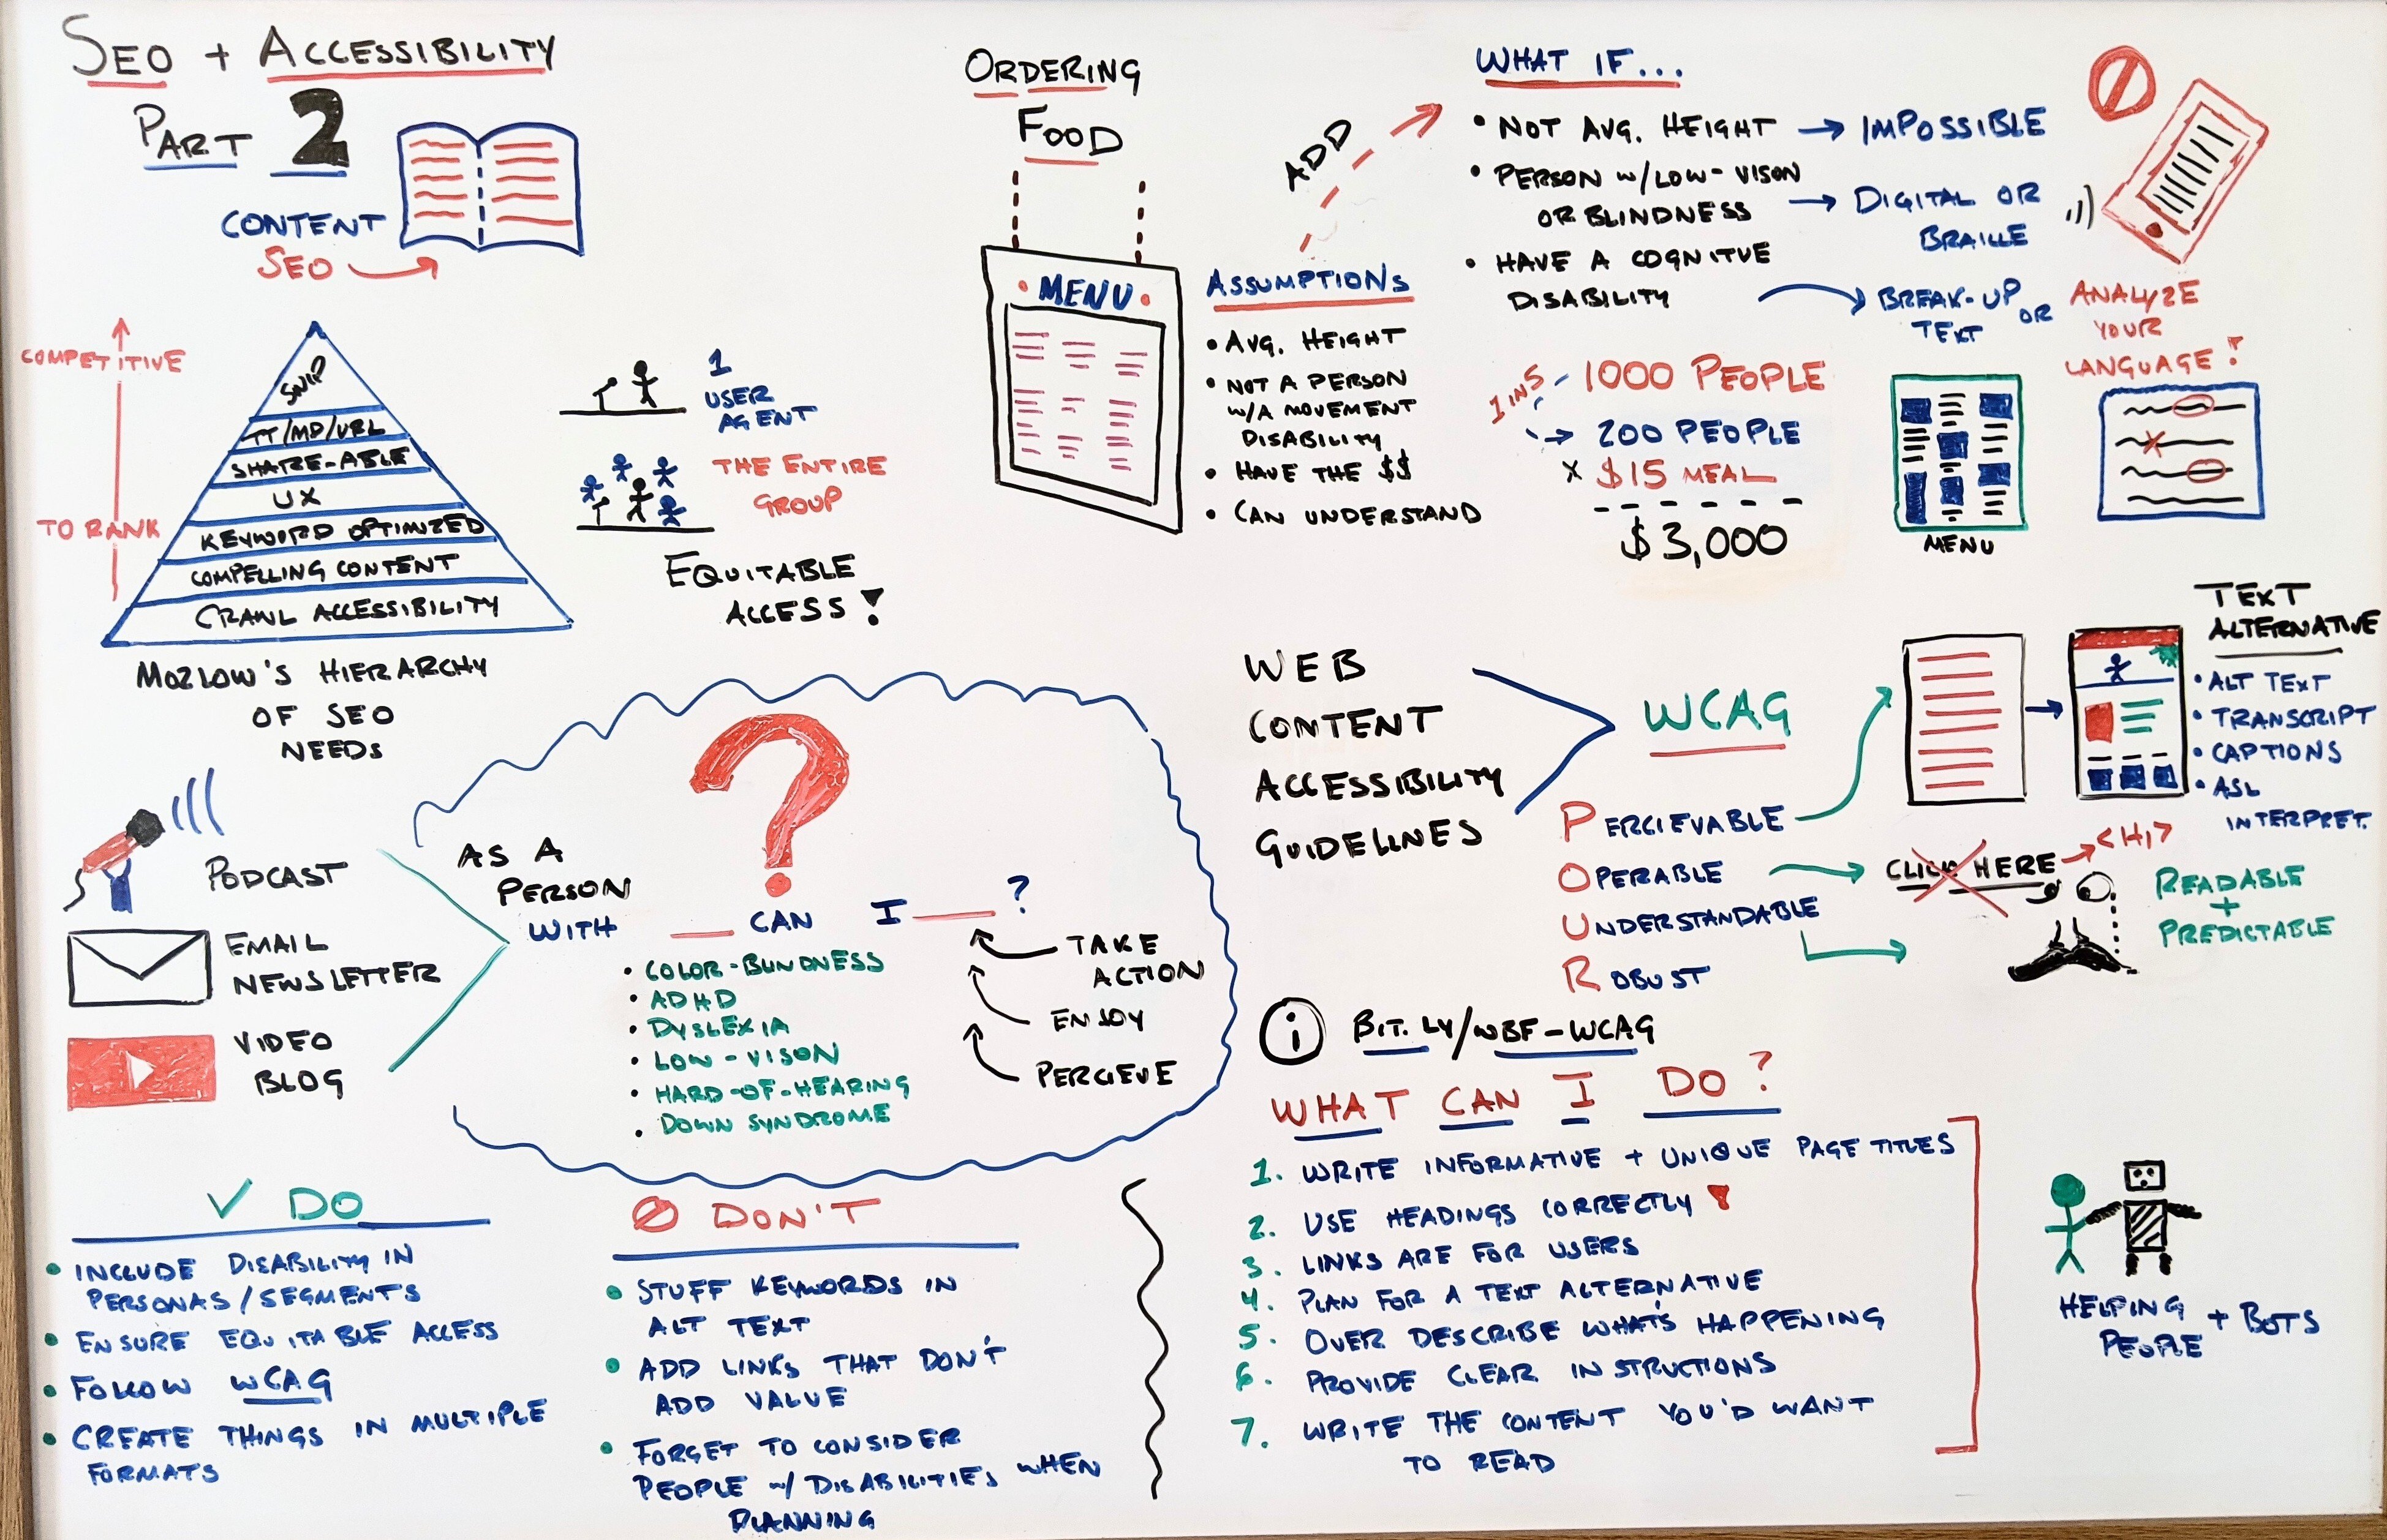 SEO + ACCESSIBILITY
PART 2
CONTENT
SEO
COMPETITIVE
TO RANK
SNIP
TT/MD/URL
SHARE-ABLE
UX
KEYWORD OPTIMIZED
COMPELLING CONTENT
CRAWL ACCESSIBILITY
MOZLOW'S HIERARCHY
OF SEO
NEEDS
1
USER
AGENT
THE ENTIRE
GROUP
EQUITABLE
ACCESS!
ORDERING
FOOD
• MENU •
ADD
ASSUMPTIONS
• AVG. HEIGHT
• NOT A PERSON
W/A MOVEMENT
DISABILITY
• HAVE THE $$
• CAN UNDERSTAND
WHAT IF...
• NOT AVG. HEIGHT → IMPOSSIBLE
• PERSON W/LOW-VISON
OR BLINDNESS → DIGITAL OR
BRAILLE
• HAVE A COGNITVE
DISABILITY
BREAK-UP OR
TEXT
ANALYZE
YOUR
LANGUAGE!
1 IN 5
1000 PEOPLE
→ 200 PEOPLE
X $15 MEAL
$3,000
MENU
PODCAST
EMAIL
NEWSLETTER
VIDEO
BLOG
?
AS A
PERSON
WITH ___ CAN I ___ ?
• COLOR-BLINDNESS
• ADHD
• DYSLEXIA
• LOW-VISON
• HARD-OF-HEARING
• DOWN SYNDROME
TAKE
ACTION
ENJOY
PERCIEVE
WEB
CONTENT
ACCESSIBILITY
GUIDELINES
WCAG
PERCIEVABLE
OPERABLE
UNDERSTANDABLE
ROBUST
TEXT
ALTERNATIVE
• ALT TEXT
• TRANSCRIPT
• CAPTIONS
• ASL
INTERPRET.
CLICK HERE
<H1>
READABLE
+
PREDICTABLE
i BIT.LY/WBF-WCAG
WHAT CAN I DO?
1. WRITE INFORMATIVE + UNIQUE PAGE TITLES
2. USE HEADINGS CORRECTLY!
3. LINKS ARE FOR USERS
4. PLAN FOR A TEXT ALTERNATIVE
5. OVER DESCRIBE WHAT'S HAPPENING
6. PROVIDE CLEAR INSTRUCTIONS
7. WRITE THE CONTENT YOU'D WANT
TO READ
HELPING
PEOPLE + BOTS
✓ DO
• INCLUDE DISABILITY IN
PERSONAS/SEGMENTS
• ENSURE EQUITABLE ACCESS
• FOLLOW WCAG
• CREATE THINGS IN MULTIPLE
FORMATS
DON'T
• STUFF KEYWORDS IN
ALT TEXT
• ADD LINKS THAT DON'T
ADD VALUE
• FORGET TO CONSIDER
PEOPLE W/ DISABILITIES WHEN
PLANNING